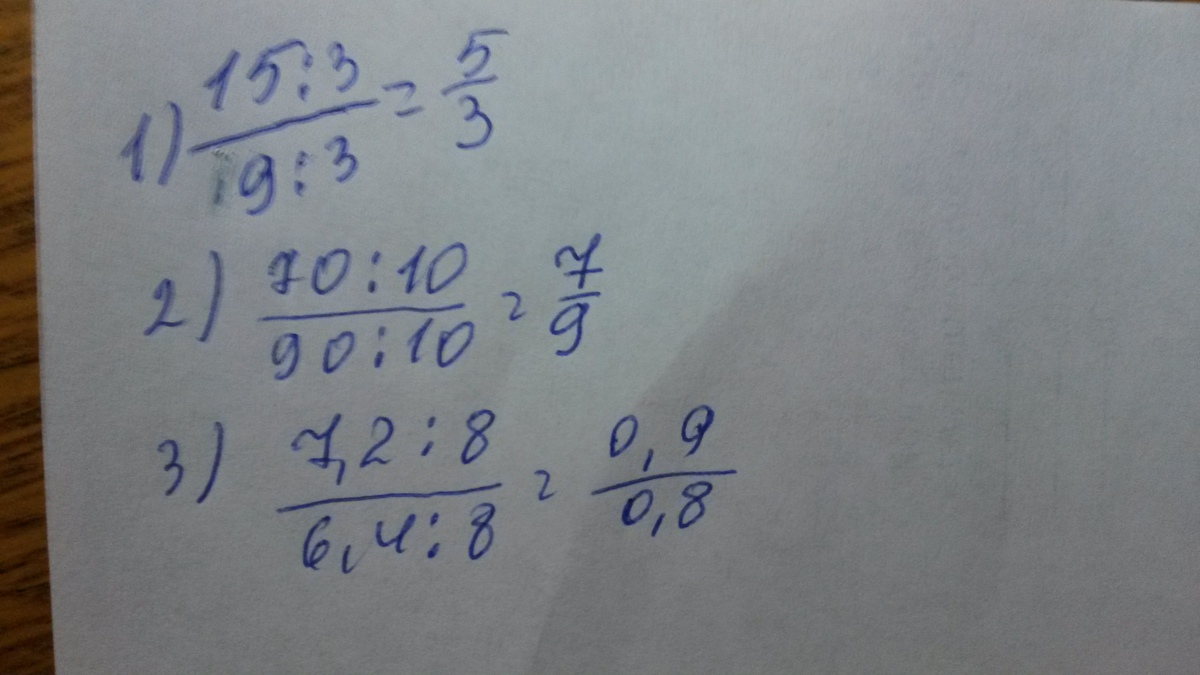 1) 15:3/9:3 = 5/3
2) 70:10/90:10 = 7/9
3) 7,2:8/6,4:8 = 0,9/0,8